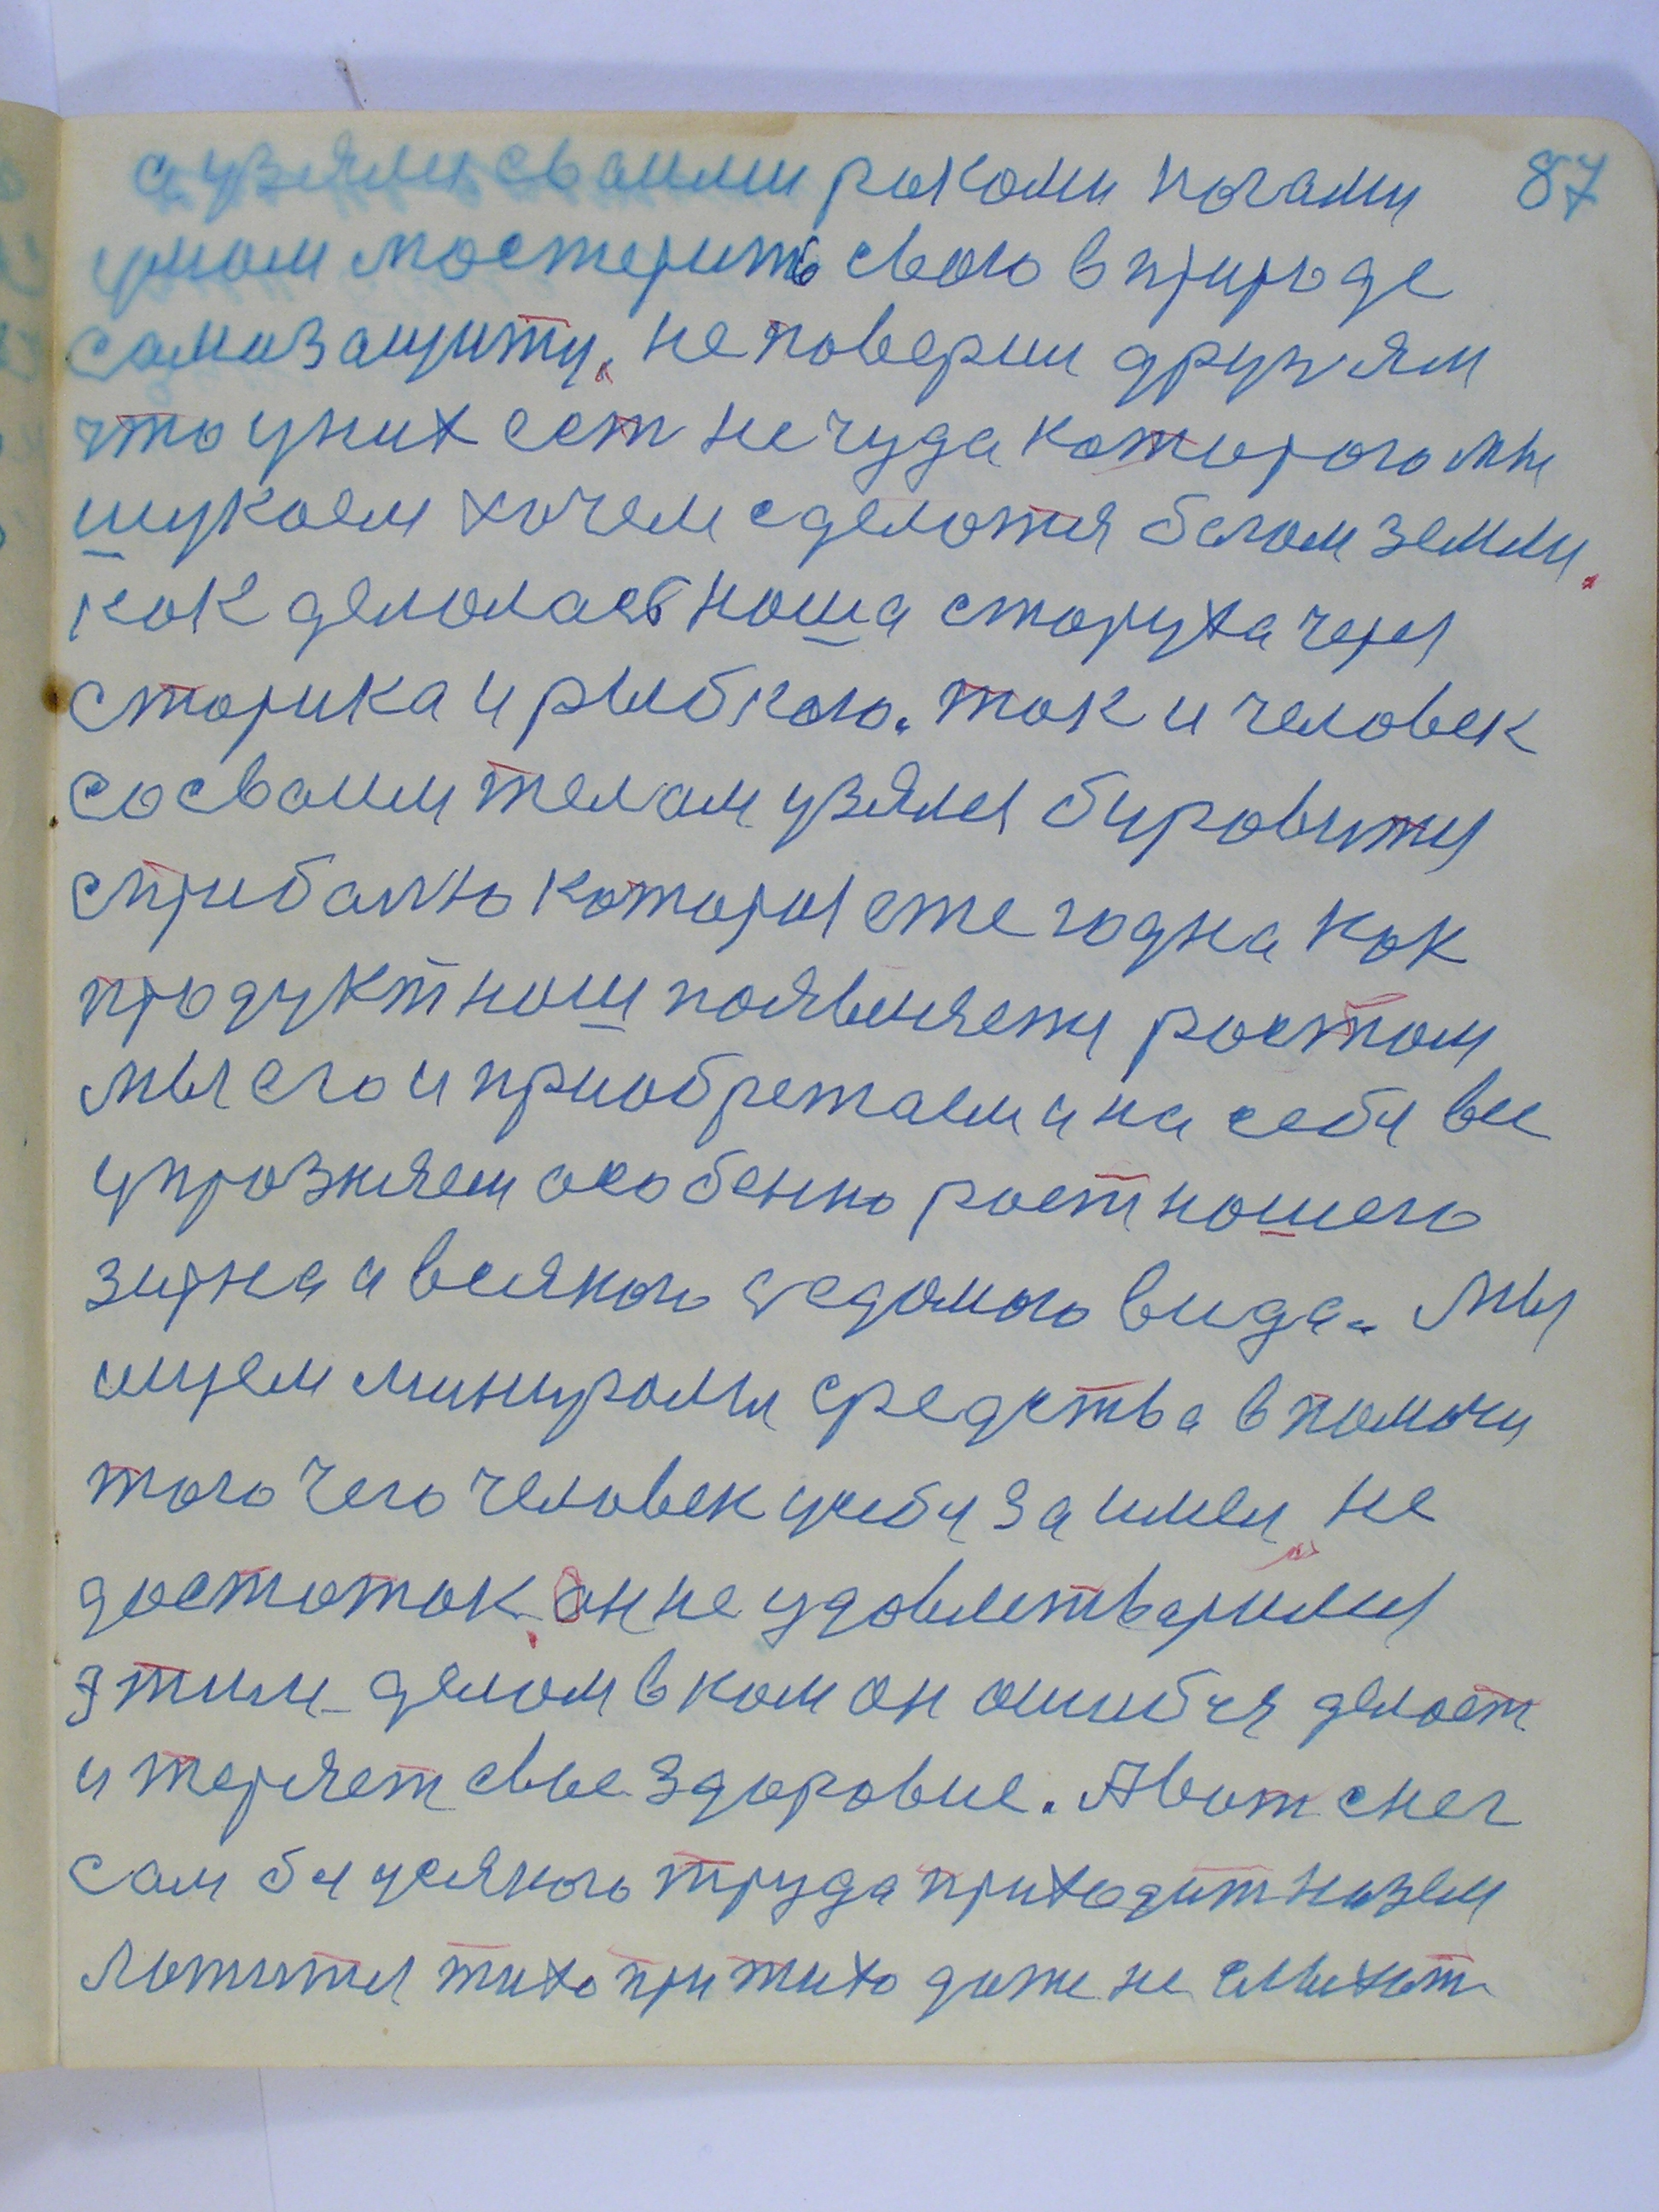 87
а узяли сваими рокоми ногами
умом мостерить свою в природе
самозащиту. не поверии друзям
что у них ест не чуда которого мы
шукаем хочем сделотся богом земли.
как делолась ноша старуха через
сторика и рыбкою. так и человек
со сваим телом узялся буровитися
с прибалю которы сте годна как
продукт нош появлняети ростом
мы его и приобретаем и на себя все
упрозняем особенно рост ношего
зирна и всякого седомого вида. Мы
ищем минироли средства в помочи
того чего человек у себя заимел не
достоток. он не удовлетварился
этим делом в ком он ошибся делоет
и теряет свое здоровие. А вот снег
сам без усякого труда приходит на зем
лотится тихо при тихо доже не слихот